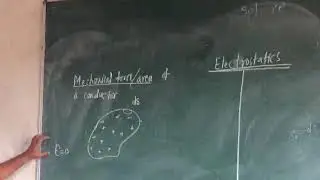 Mechanical force/area of
a conductor
ds
E=0
Electrostatics